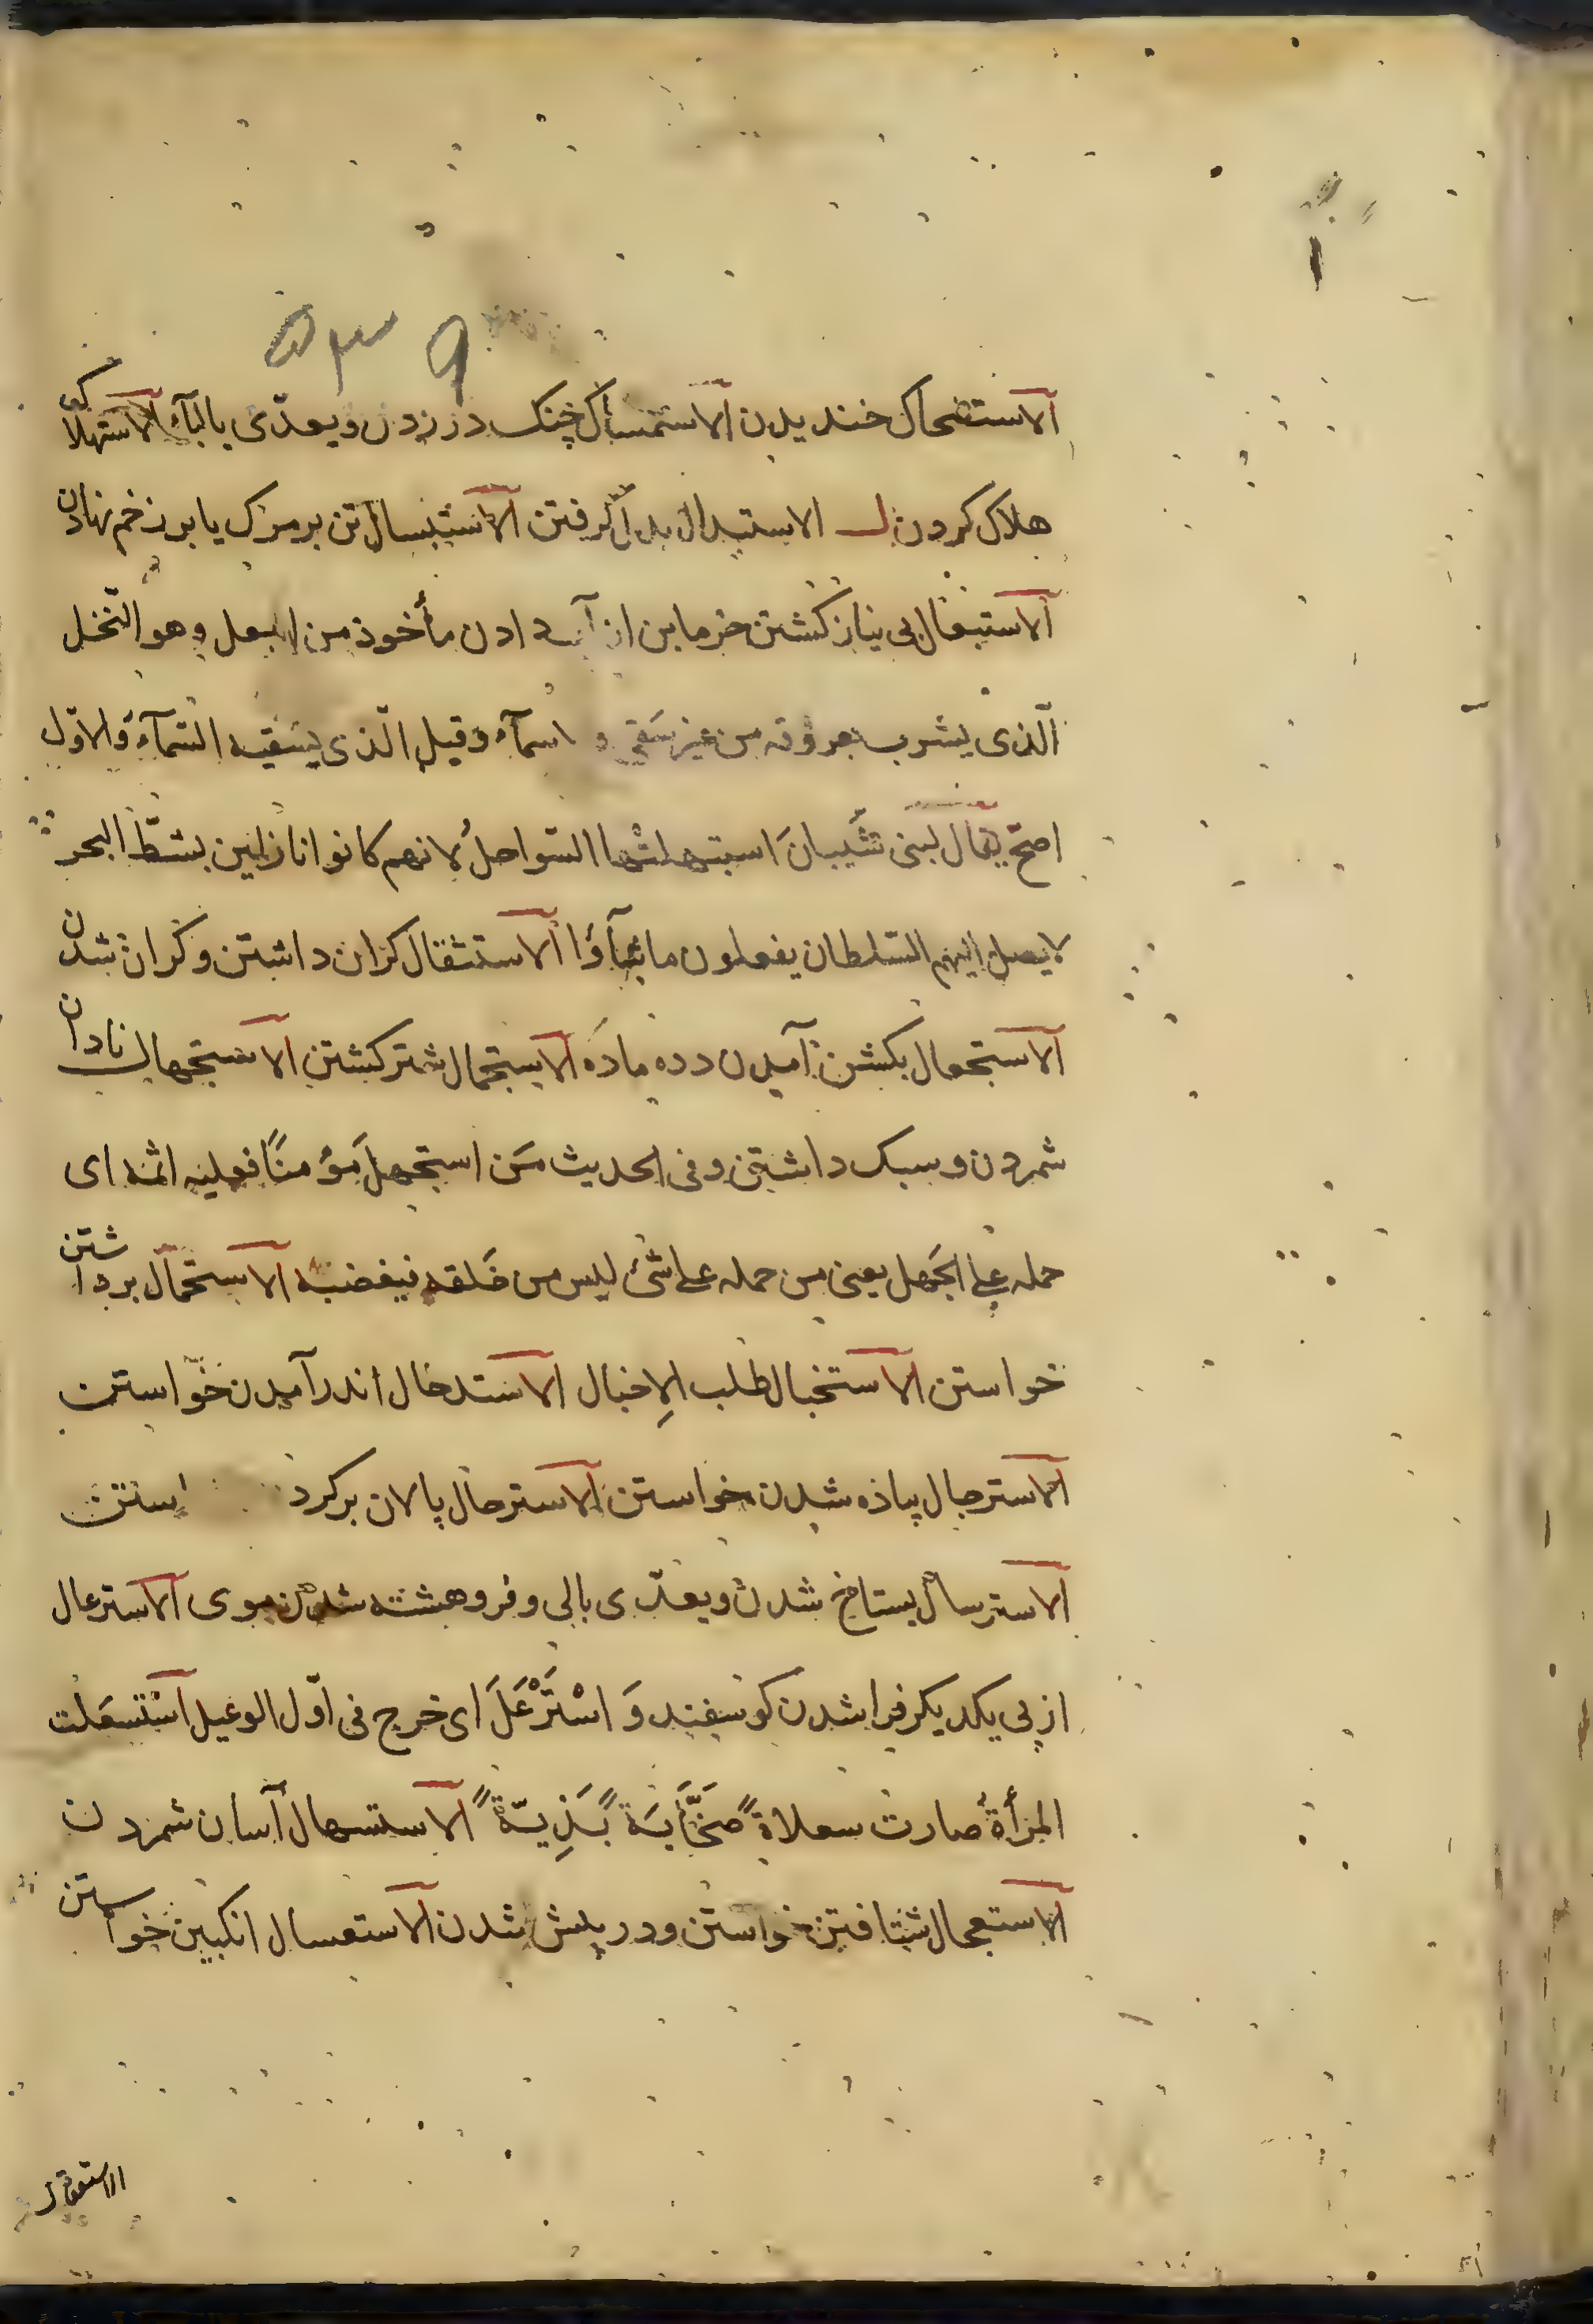 ۵۳۹
الاستضحاک خندیدن الاستمساک چنک در زدن ویعدّی بالبآء الاستهلاک
هلاک کردن ل الاستبدال بدل کرفتن الاستبسال تن بر مرک یا بر زخم نهادن
الاستبعال بی نیاز کشتن خرمابن از آب دادن مأخوذ من البعل وهو النّخل
الّذی یشرب بعروقه من غیر سَقی و سمآء وقیل الّذی یسقیه السّمآء والاوّل
اصحّ یقال لبنی شَیبانَ استبهلتها السّواحلُ لانهم کانوا نازلین بشطّ البحر
لا یصل الیهم السّلطان یفعلون ما شآؤا الاستثقال کران داشتن وکران شدن
الاستجعال بکشن آمدن دده ماده الاستجمال شتر کشتن الاستجهال نادان
شمردن وسبک داشتن وفی الحدیث مَن استجهلَ مؤمنًا فعلیه اثمه ای
حمله علی الجهل یعنی من حمله علی شئ لیس من خَلقه فیغضبه الاستحمال برداشتن
خواستن الاستخبال طلب الاِخبال الاستدخال اندر آمدن خواستن
الاسترجال پیاده شدن خواستن الاسترحال پالان برکرد استن
الاسترسال بستاخ شدن ویعدّی بالی وفروهشته شدن موی الاسترعال
از پی یکدیکر فرا شدن کوسفند وَاسْتَرْعَلَ ای خرج فی اوّل الرعیل استسعلت
المرأةُ صارت سعلاةً صَخَّابَةً بَذِیّةً الاستسهال آسان شمردن
الاستعجال شتافتن خواستن ودر پیش شدن الاستعسال انکبین خواستن